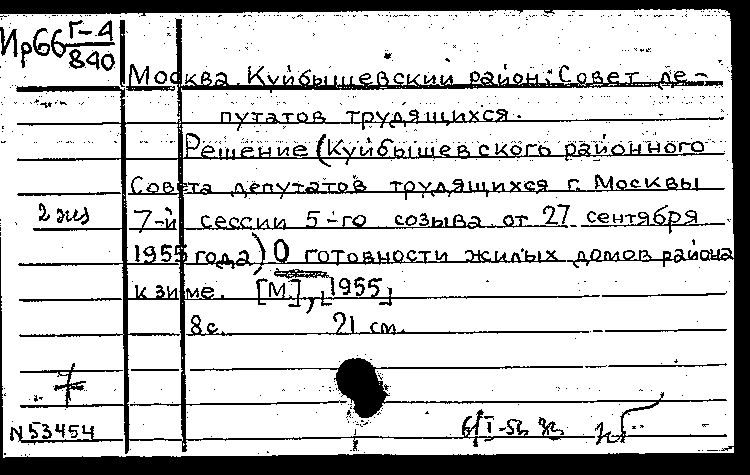 Ир66 Г-4
840
Москва. Куйбышевский район. Совет де-
путатов трудящихся.
Решение (Куйбышевского районного
Совета депутатов трудящихся г. Москвы
2 экз 7-й сессии 5-го созыва от 27 сентября
1955 года) О готовности жилых домов района
к зиме. [М.], [1955]
8 с. 21 см.
7
N53454